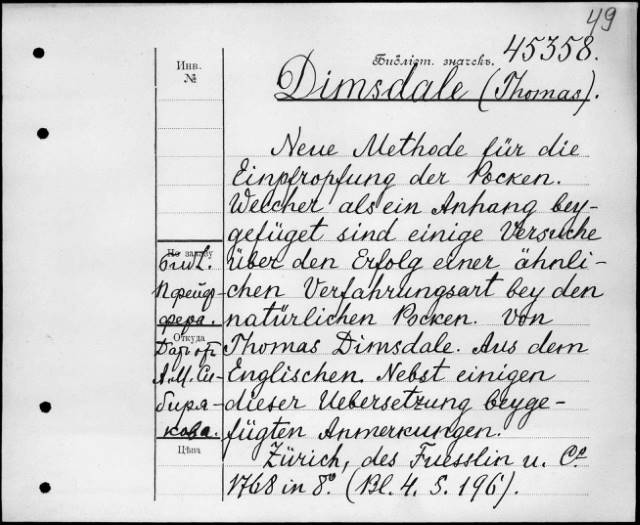 49
Библіот. значекъ. 45358.
Инв. №
Dimsdale (Thomas).
Neue Methode für die
Einpfropfung der Pocken.
Welcher als ein Anhang bey-
gefüget sind einige Versuche
По заказу
über den Erfolg einer ähnli-
Библ.
chen Verfahrungsart bey den
Пфейф-
natürlichen Pocken. Von
фера.
Откуда
Thomas Dimsdale. Aus dem
Дар от
Englischen. Nebst einigen
А. М. Си-
dieser Uebersetzung beyge-
биря-
fügten Anmerkungen.
кова.
Цѣна
Zürich, des Fuesslin u. Cᵒ
1768 in 8º. (Bl. 4. S. 196).